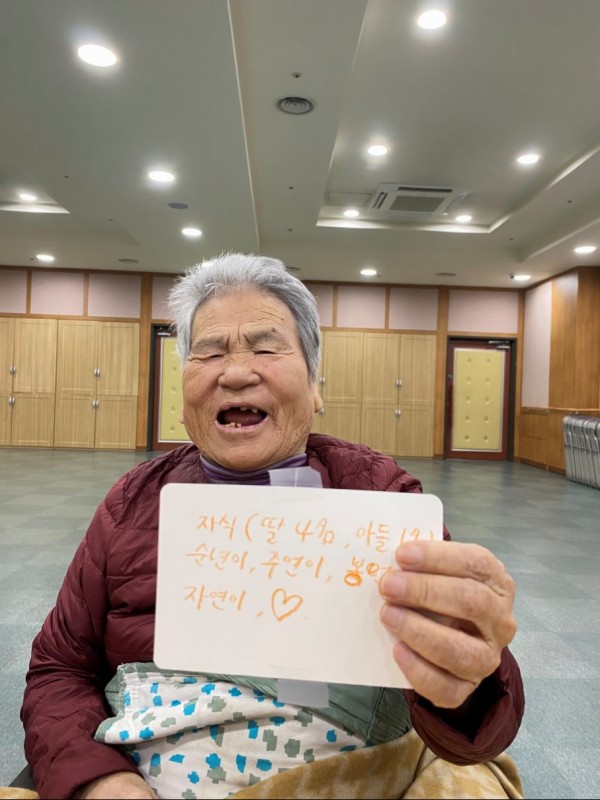 지식 (딸 4명, 아들
순년이, 주연이,
자연이, ♡